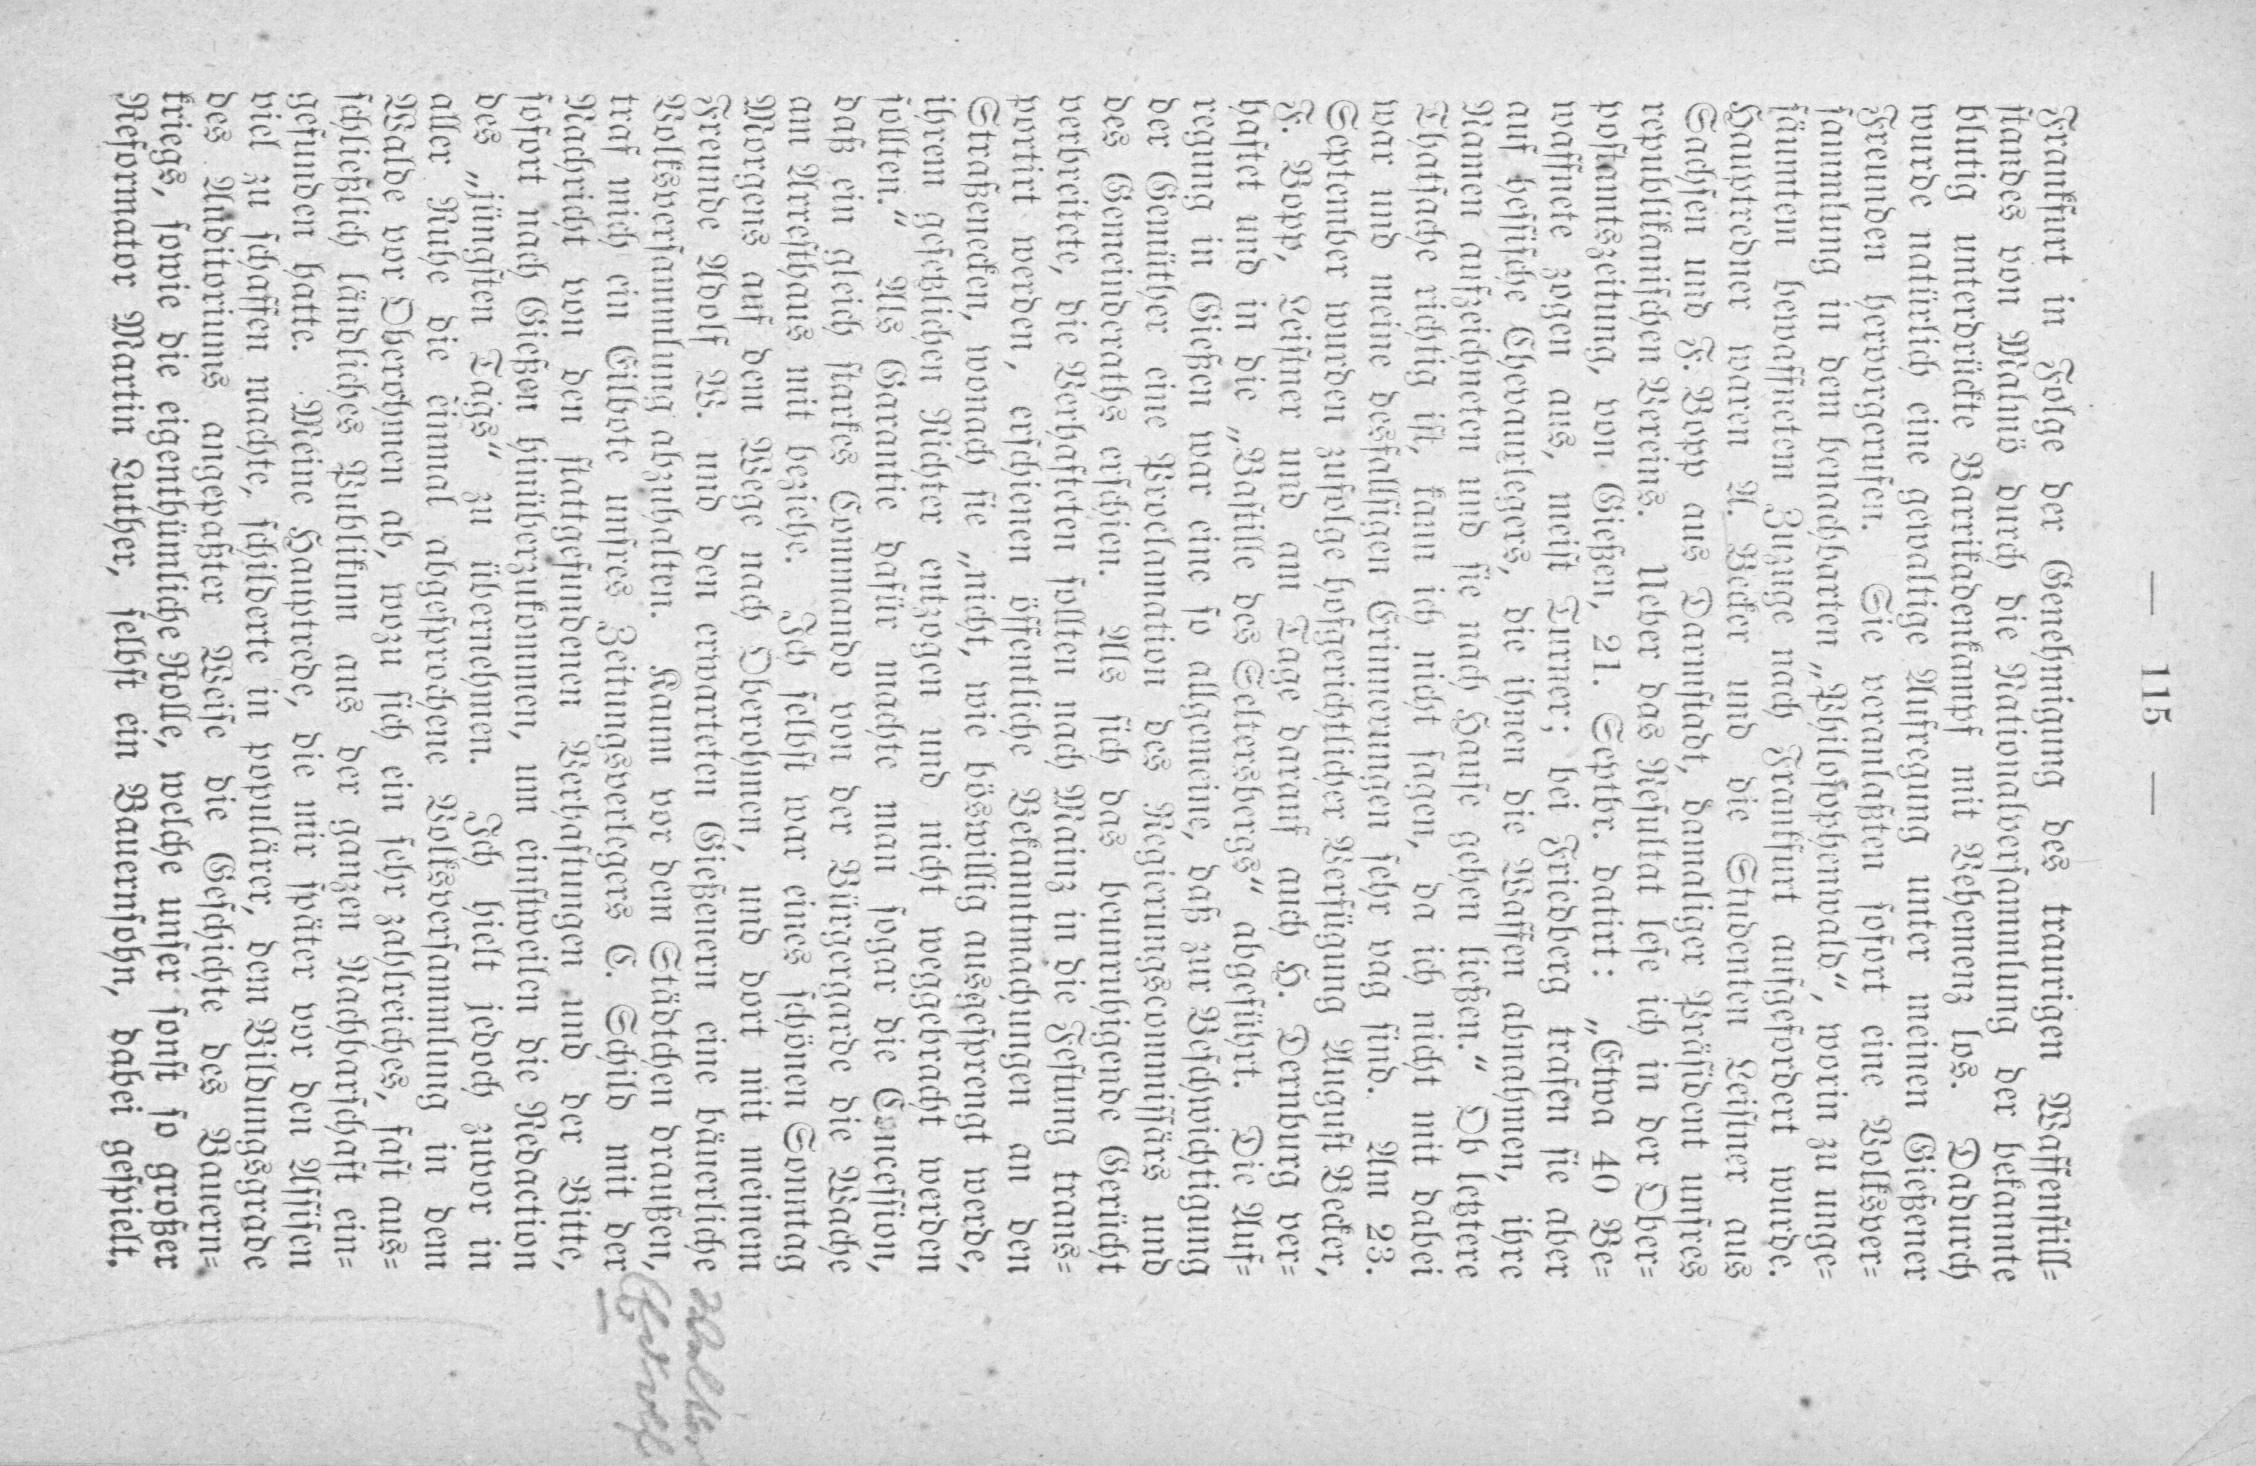 — 115 —
Frankfurt in Folge der Genehmigung des traurigen Waffenstill-
standes von Malmö durch die Nationalversammlung der bekannte
blutig unterdrückte Barrikadenkampf mit Vehemenz los. Dadurch
wurde natürlich eine gewaltige Aufregung unter meinen Gießener
Freunden hervorgerufen. Sie veranlaßten sofort eine Volksver-
sammlung in dem benachbarten „Philosophenwald“, worin zu unge-
säumten bewaffnetem Zuzuge nach Frankfurt aufgefordert wurde.
Hauptredner waren A. Becker und die Studenten Leisner aus
Sachsen und F. Bopp aus Darmstadt, damaliger Präsident unsres
republikanischen Vereins. Ueber das Resultat lese ich in der Ober-
postamtszeitung, von Gießen, 21. Septbr. datirt: „Etwa 40 Be-
waffnete zogen aus, meist Turner; bei Friedberg trafen sie aber
auf hessische Chevauxlegers, die ihnen die Waffen abnahmen, ihre
Namen aufzeichneten und sie nach Hause gehen ließen.“ Ob letztere
Thatsache richtig ist, kann ich nicht sagen, da ich nicht mit dabei
war und meine desfallsigen Erinnerungen sehr vag sind. Am 23.
September wurden zufolge hofgerichtlicher Verfügung August Becker,
F. Bopp, Leisner und am Tage darauf auch H. Dernburg ver-
haftet und in die „Bastille des Seltersbergs“ abgeführt. Die Auf-
regung in Gießen war eine so allgemeine, daß zur Beschwichtigung
der Gemüther eine Proclamation des Regierungscommissärs und
des Gemeinderaths erschien. Als sich das beunruhigende Gerücht
verbreitete, die Verhafteten sollten nach Mainz in die Festung trans-
portirt werden, erschienen öffentliche Bekanntmachungen an den
Straßenecken, wonach sie „nicht, wie böswillig ausgesprengt werde,
ihren gesetzlichen Richter entzogen und nicht weggebracht werden
sollten.“ Als Garantie dafür machte man sogar die Concession,
daß ein gleich starkes Commando von der Bürgergarde die Wache
am Arresthaus mit beziehe. Ich selbst war eines schönen Sonntag
Morgens auf dem Wege nach Oberohmen, und dort mit meinem
Freunde Adolf W. und den erwarteten Gießenern eine bäuerliche
Volksversammlung abzuhalten. Kaum vor dem Städtchen draußen,
traf mich ein Eilbote unsres Zeitungsverlegers C. Schild mit der
Nachricht von den stattgefundenen Verhaftungen und der Bitte,
sofort nach Gießen hinüberzukommen, um einstweilen die Redaction
des „jüngsten Tags“ zu übernehmen. Ich hielt jedoch zuvor in
aller Ruhe die einmal abgesprochene Volksversammlung in dem
Walde vor Oberohmen ab, wozu sich ein sehr zahlreiches, fast aus-
schließlich ländliches Publikum aus der ganzen Nachbarschaft ein-
gefunden hatte. Meine Hauptrede, die mir später vor den Assisen
viel zu schaffen machte, schilderte in populärer, dem Bildungsgrade
des Auditoriums angepaßter Weise die Geschichte des Bauern-
kriegs, sowie die eigenthümliche Rolle, welche unser sonst so großer
Reformator Martin Luther, selbst ein Bauernsohn, dabei gespielt.